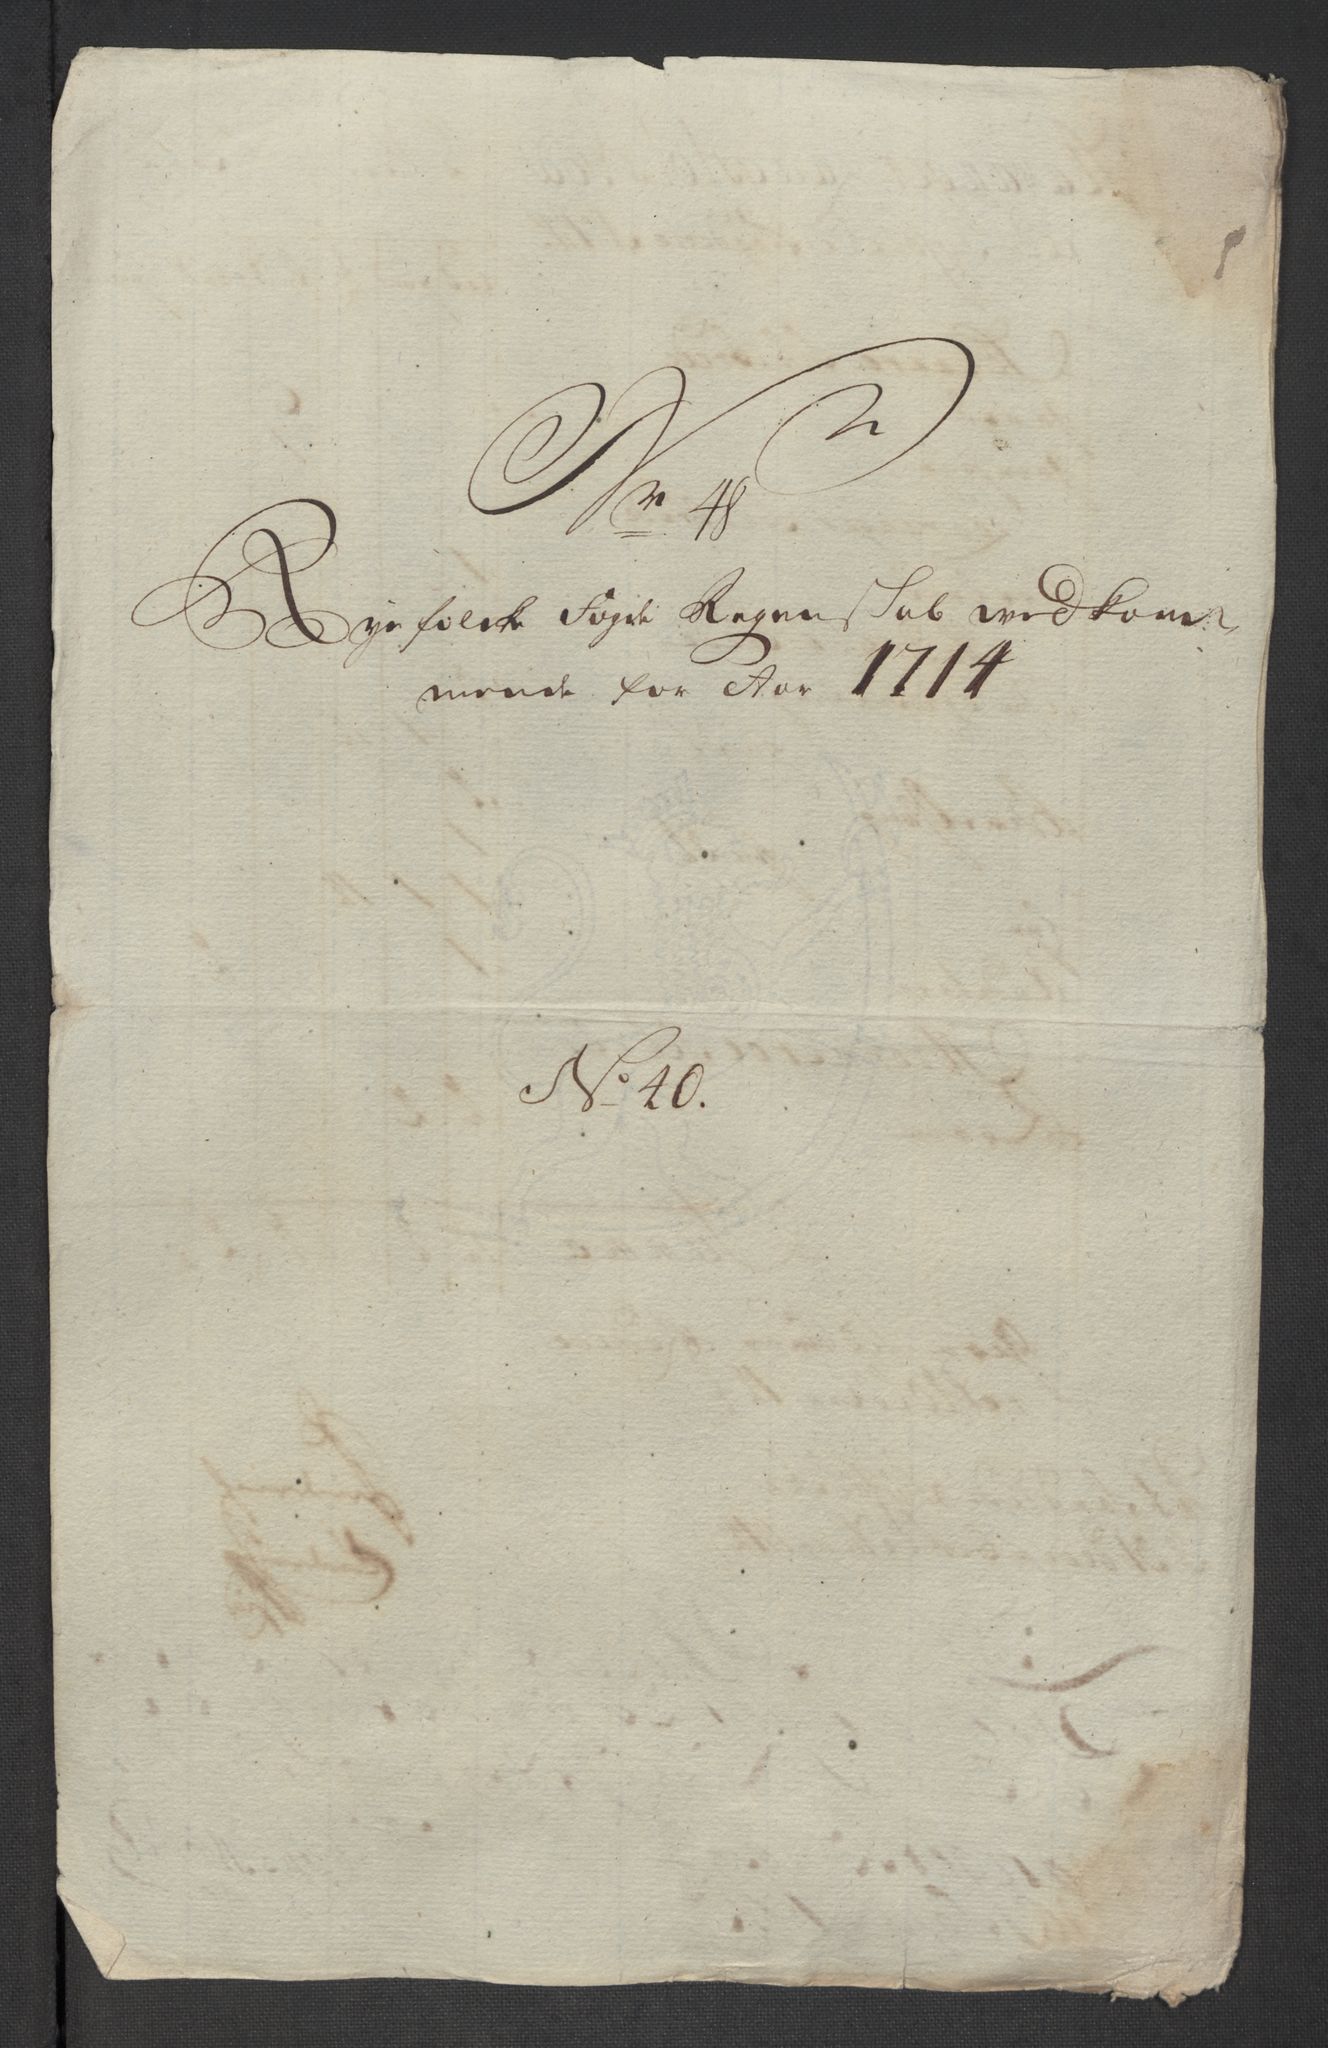 Nr 48
Ryefolcke Fogde Regenskab vedkom-
mende for Aar 1714
No 40.